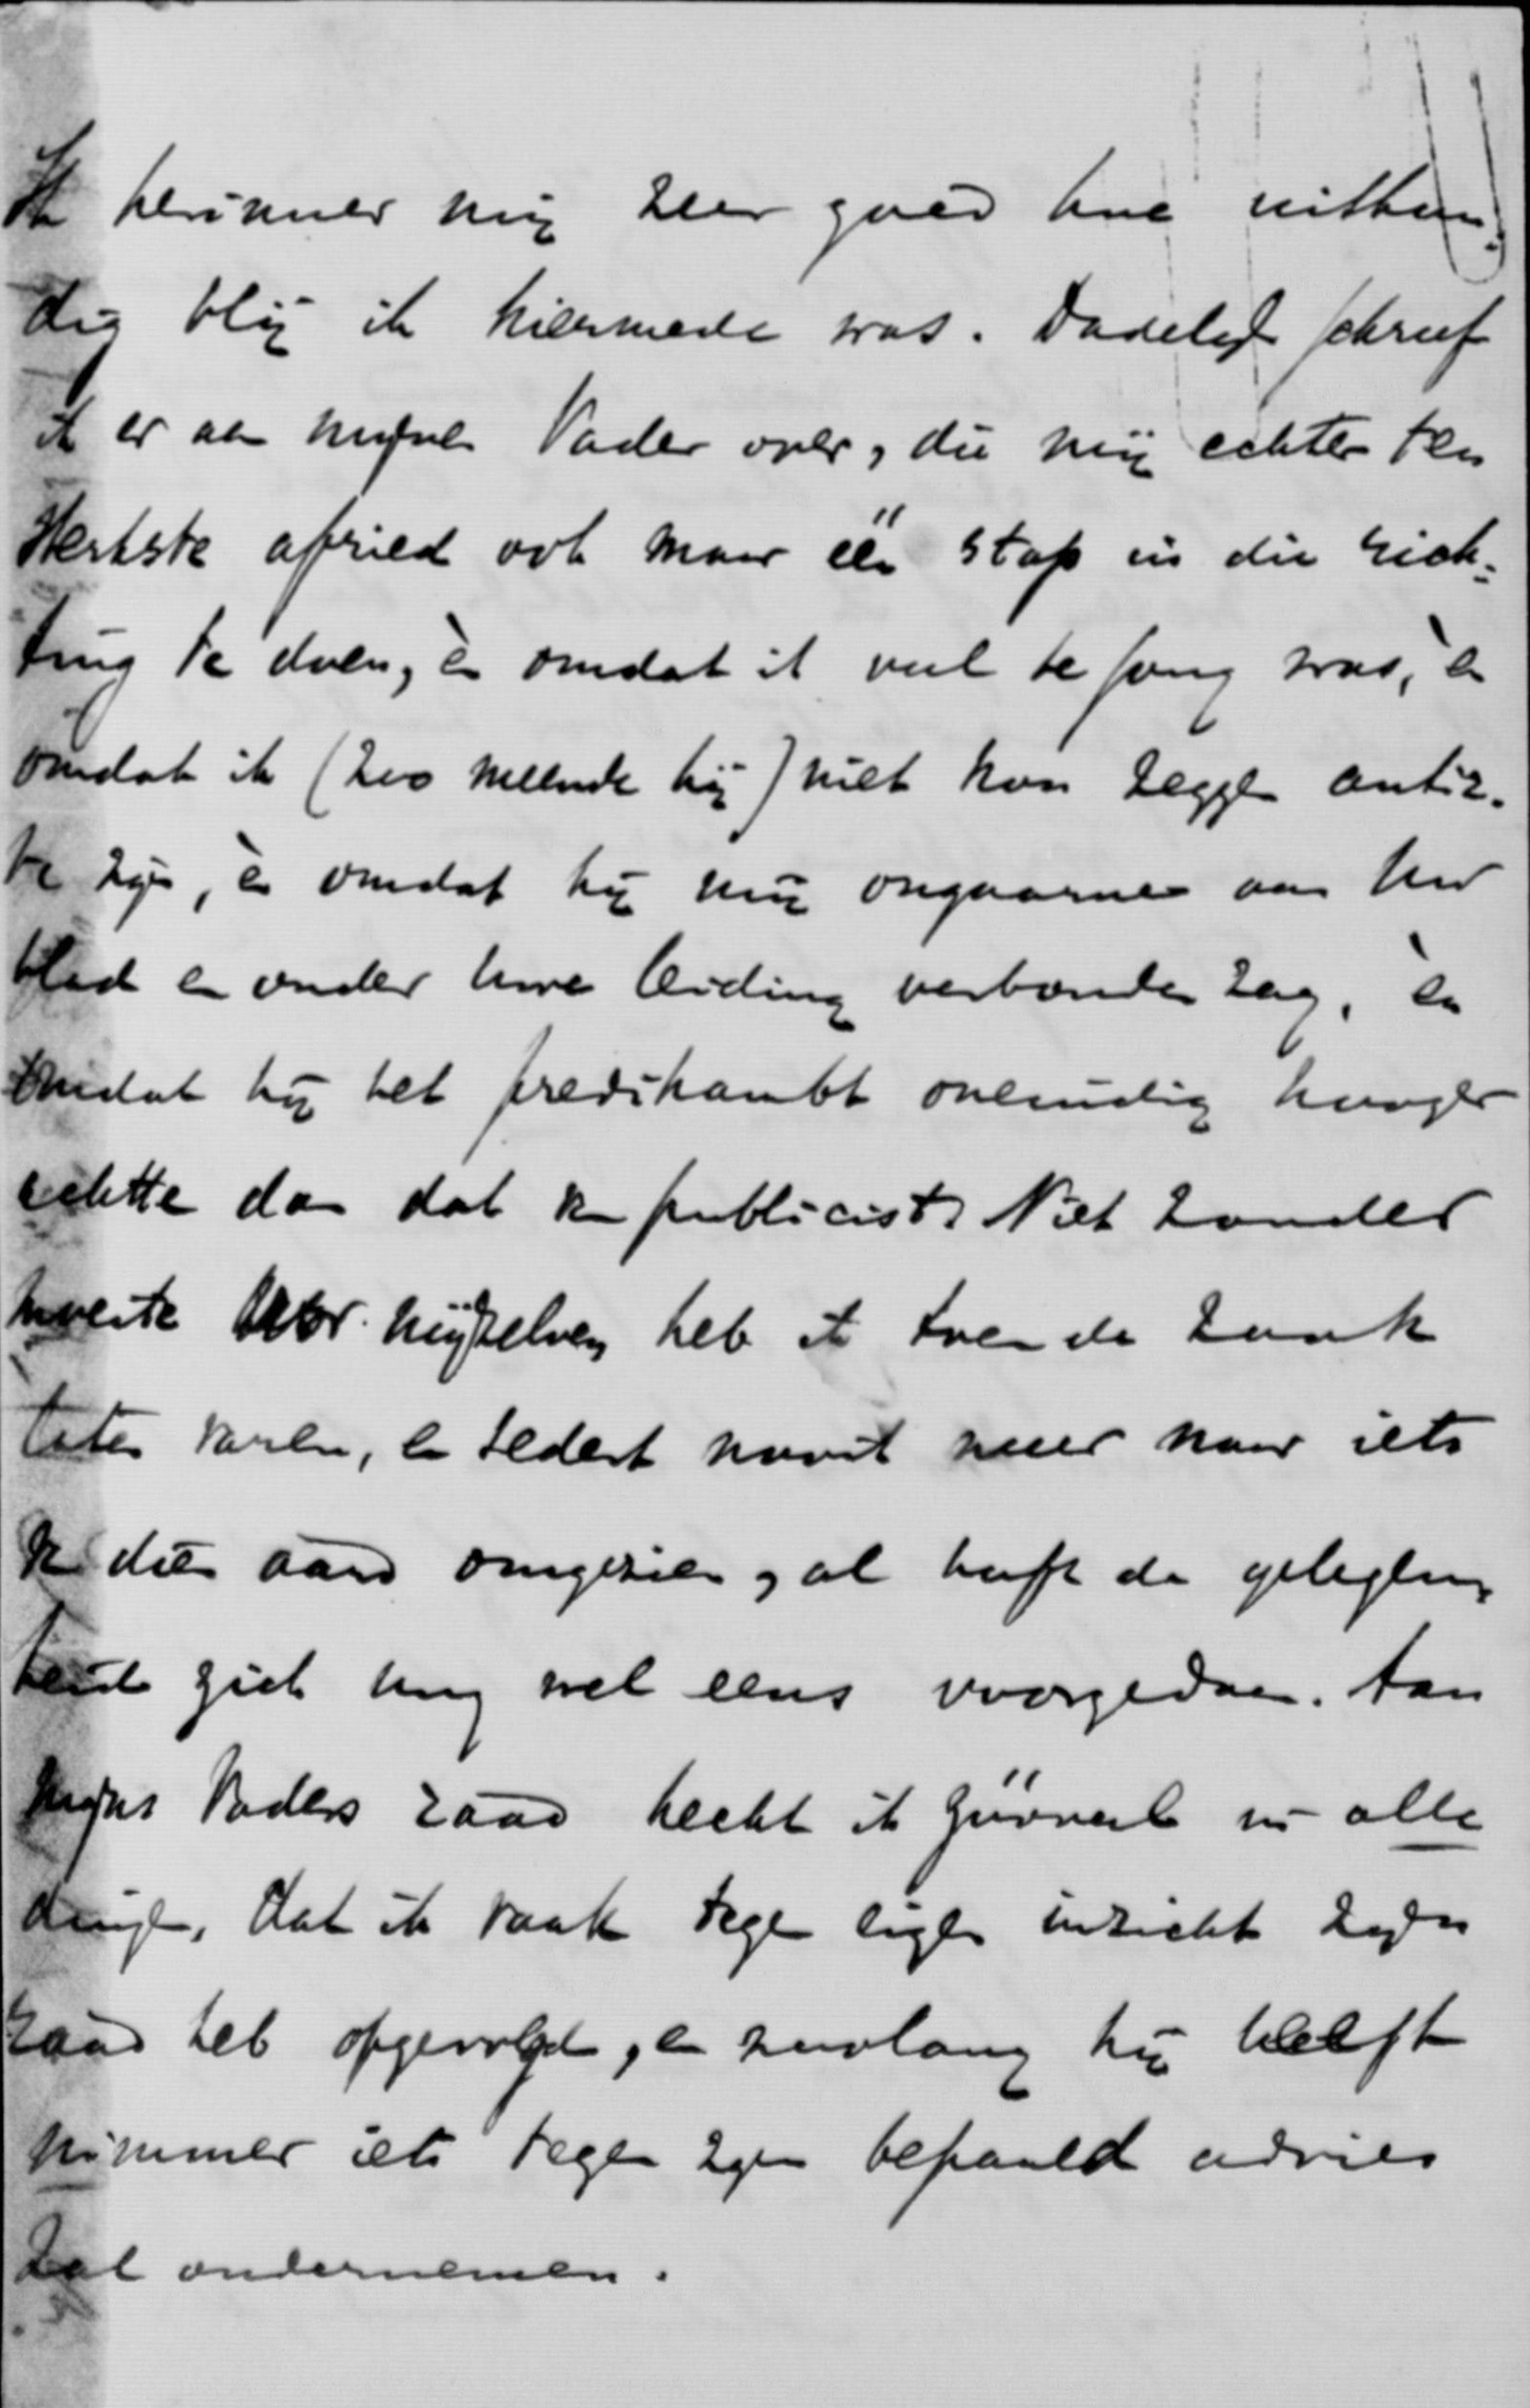 Ik herinner mij zeer goed hoe uitbun-
dig blij ik hiermede was. Dadelijk schreef
ik er aan mijnen Vader over, die mij echter ten
sterkste afried ook maar één stap in die rich-
ting te doen, èn omdat ik veel te jong was, èn
omdat ik (zoo meende hij) niet kon zeggen antir.
te zijn, èn omdat hij mij ongaarne aan Uw
blad en onder Uwe leiding verbonden zag, èn
omdat hij het predikambt oneindig hooger
achtte dan dat van publicist. Niet zonder
moeite voor mijzelven heb ik toen de zaak
laten varen, en sedert nooit meer naar iets
van dien aard omgezien, al heeft de gelegen-
heid zich mij wel eens voorgedaan. Aan
mijns Vaders raad hecht ik zooveel in alle
dingen, dat ik vaak tegen eigen inzicht zijn
raad heb opgevolgd, en zoolang hij leeft
nimmer iets tegen zijn bepaald advies
zal ondernemen.